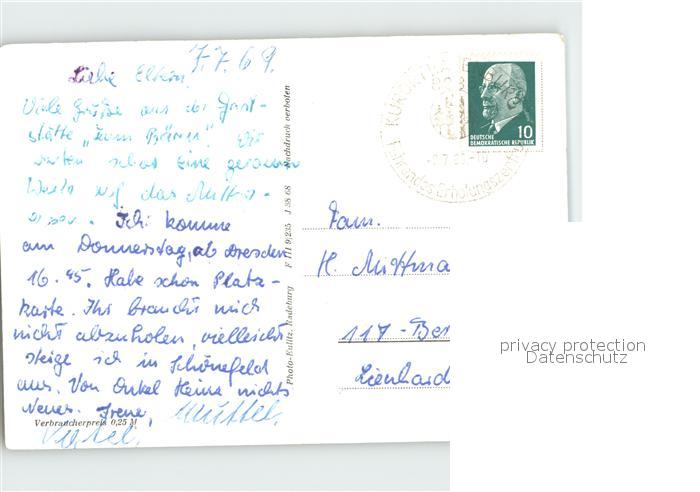 7.7.69.
Liebe Eltern!
Viele Grüße aus der Gast-
stätte „zum Bären". Wir
warten schon eine geraume
Weile auf das Mittag-
essen. Ich komme
am Donnerstag, ab Dresden
16.45. Habe schon Platz-
karte. Ihr braucht mich
nicht abzuholen, vielleicht
steige ich in Schönefeld
aus. Von Onkel Heinz nichts
Neues. Irene,
Verbraucherpreis 0,25 M
Photo-Eulitz, Radeburg F III 9/235 J 38 68 Nachdruck verboten
KURORT
Führendes Erholungszentrum
DEUTSCHE
DEMOKRATISCHE REPUBLIK
10
Fam.
H. Mittma
117-Ber
Lienhard
privacy protection
Datenschutz